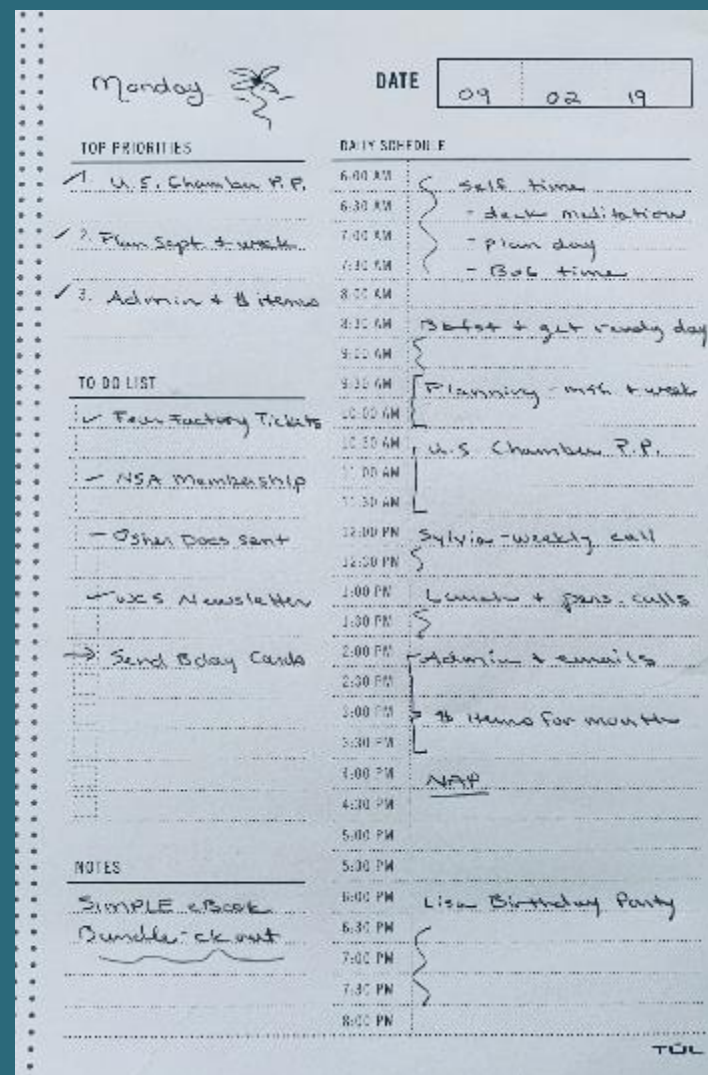 Monday
DATE 09 02 19
TOP PRIORITIES
1. U.S. Chamber P.P.
2. Plan Sept + week
3. Admin + $ items
TO DO LIST
Four Factory Tickets
NSA Membership
Osher Docs sent
WCS Newsletter
Send Bday Cards
NOTES
SIMPLE eBook
Bundle - ck out
DAILY SCHEDULE
6:00 AM self time
6:30 AM - deck meditation
7:00 AM - plan day
7:30 AM - Bob time
8:00 AM
8:30 AM Bkfst + get ready day
9:00 AM
9:30 AM Planning - mth + week
10:00 AM
10:30 AM U.S Chamber P.P.
11:00 AM
11:30 AM
12:00 PM Sylvia - weekly call
12:30 PM
1:00 PM Lunch + pers. calls
1:30 PM
2:00 PM Admin + emails
2:30 PM
3:00 PM $ items for month
3:30 PM
4:00 PM NAP
4:30 PM
5:00 PM
5:30 PM
6:00 PM Lisa Birthday Party
6:30 PM
7:00 PM
7:30 PM
8:00 PM
TUL